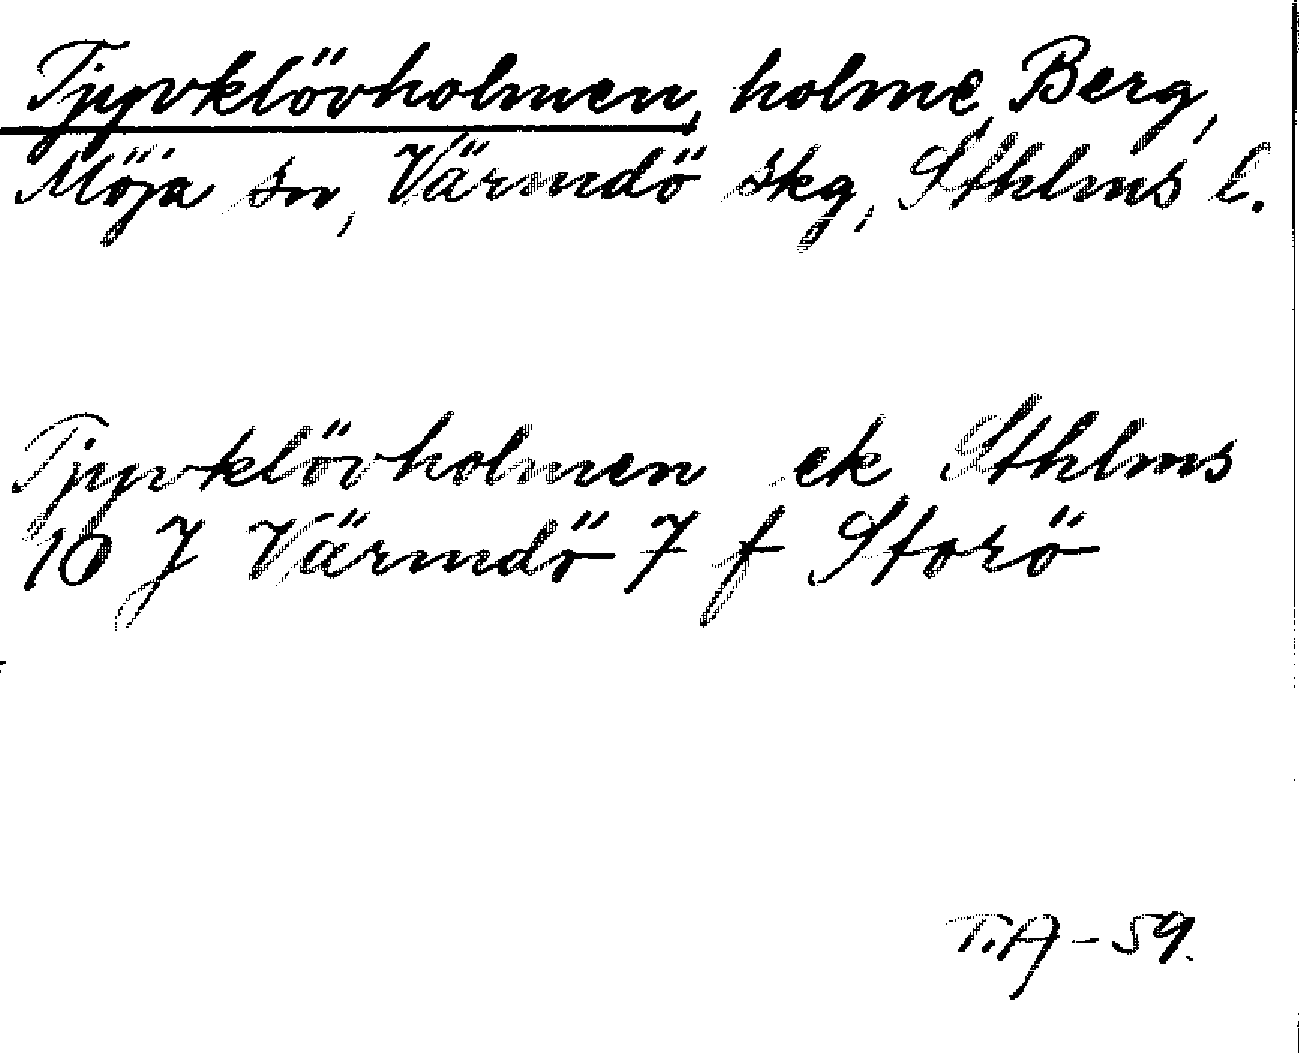 Tjyvklövholmen, holme, Berg,
Möja sn, Värmdö skg, Sthlms l.
Tjyvklövholmen ek Sthlms
10 J Värmdö 7 f Storö
T.A-59.